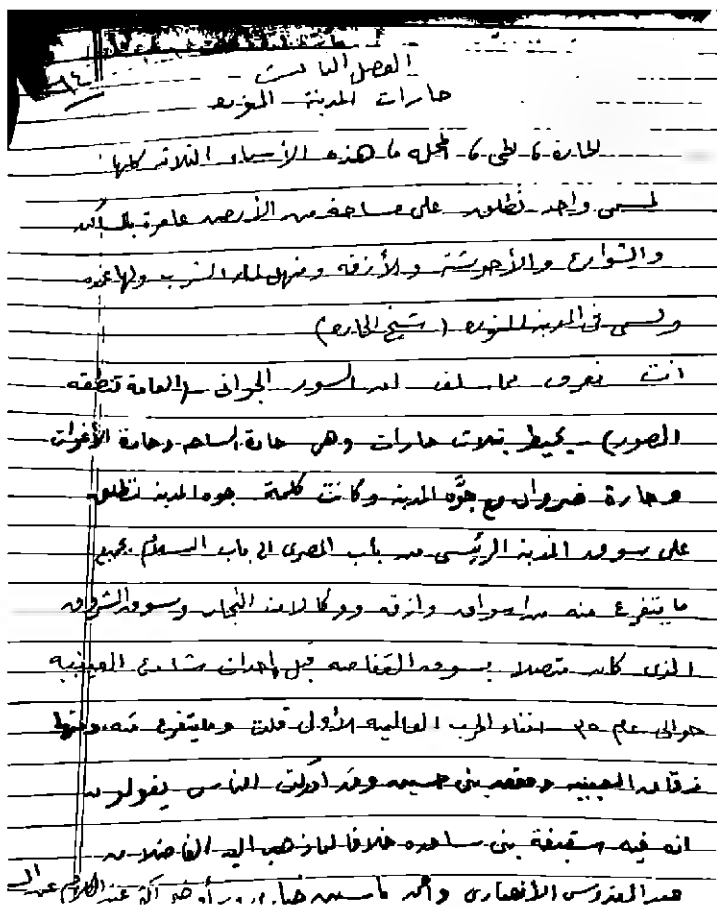 ٦٤
الفصل الثالث
حارات المدينة المنوره
الحارة، الحي، المحله، هذه الأسماء الثلاثة كلها
لمسمى واحد تطلق على مساحة من الأرض عامرة بالمساكن
والشوارع والأحوشة والأزقه ومنهل لماء الشرب ولها عمده
ويسمى في المدينة المنوره (شيخ الحاره)
انت تعرف مما سلف ان السور الجواني (العامة تنطقه
الصور) يحيط بثلاث حارات وهي حارة الساحه وحارة الأغوات
وحارة ضروان مع جوَّه المدينه وكانت كلمة جوه المدينه تطلق
على سوق المدينة الرئيسى من باب المصرى الى باب السلام بجميع
ما يتفرع منه من اسواق وازقه ووكالات التجار وسوق الشروق
الذى كان متصلا بسوق القفاصه قبل إحداث شارع العينيه
حوالى عام ٣٥ اثناء الحرب العالميه الأولى قلت وما يتفرع منه ومنها
زقاق الحبيبيه ومقعد بنى حسين وقد أدركت الناس يقولون
انه فيه سقيفة بنى ساعده خلافا لما ذهب اليه الفاضلان
عبد القدوس الأنصارى و ياسين عند الكلام عن